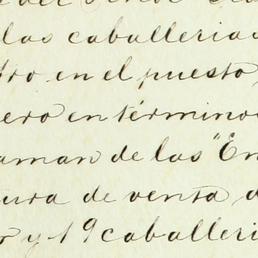 las caballerias
tro en el puesto
ero en términos
aman de las "En
tura de venta
y 19 caballeri